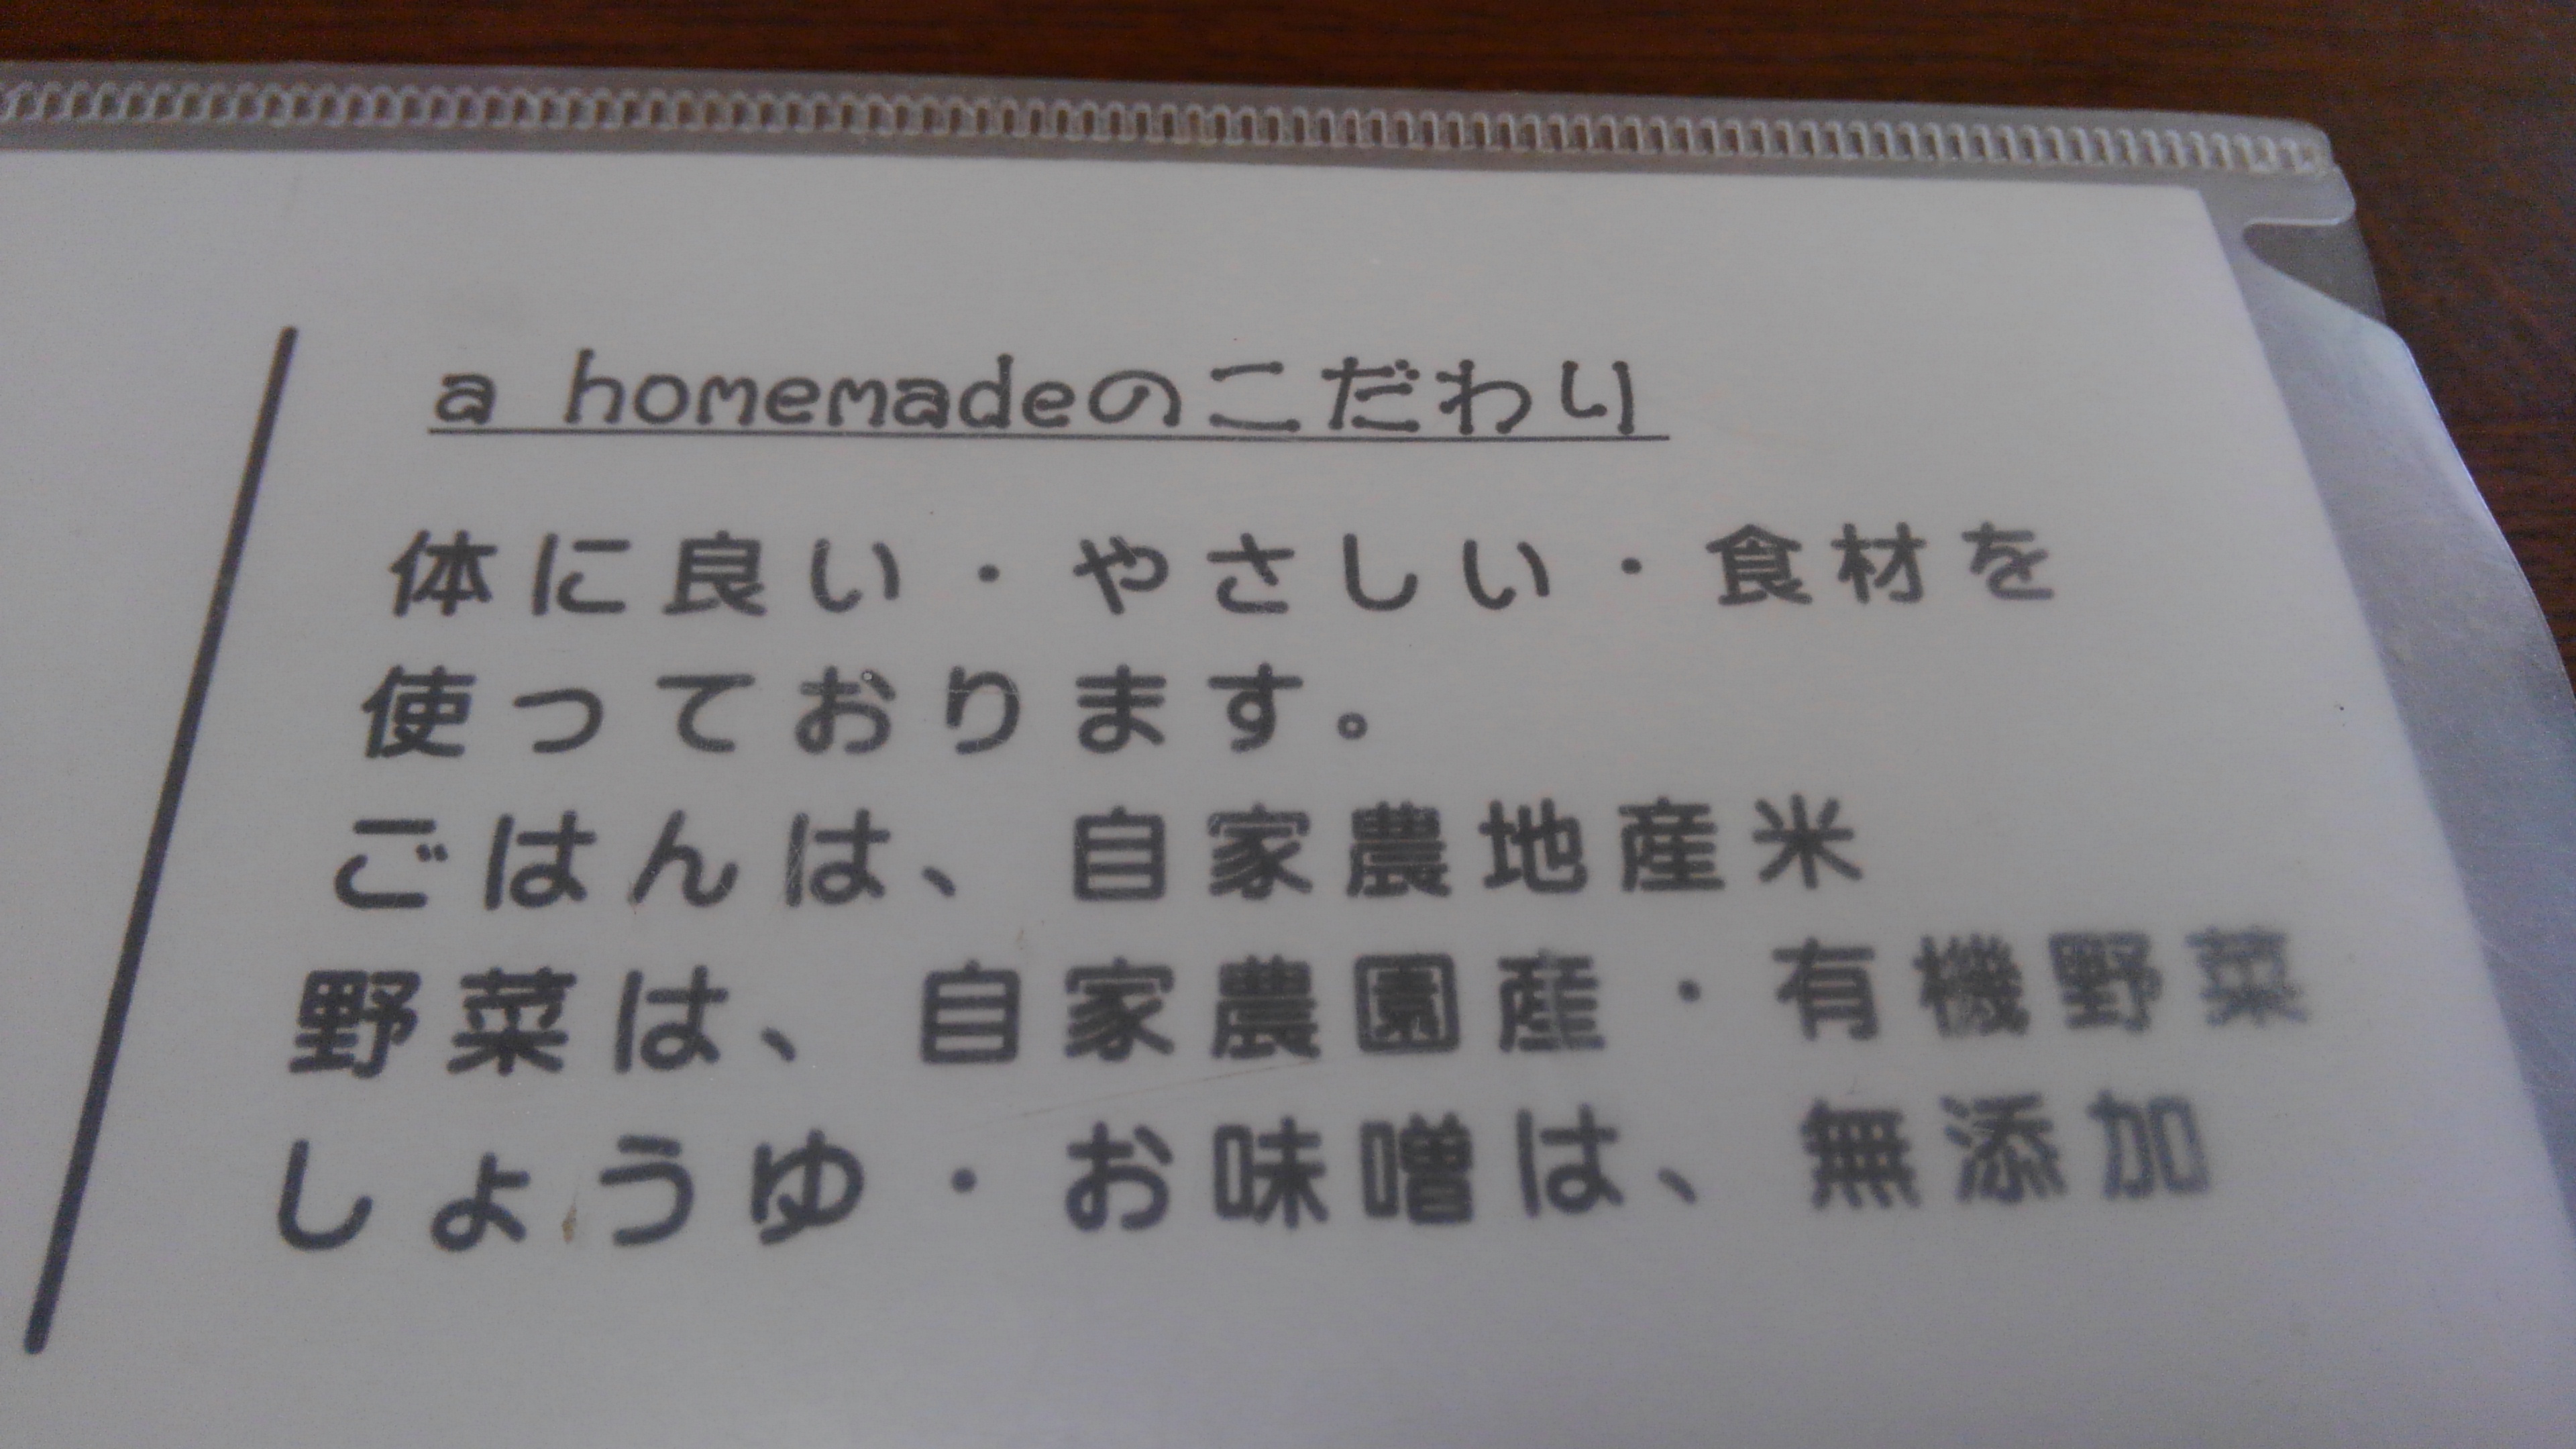 a homemadeのこだわり
体に良い・やさしい・食材を
使っております。
ごはんは、自家農地産米
野菜は、自家農園産・有機野菜
しょうゆ・お味噌は、無添加